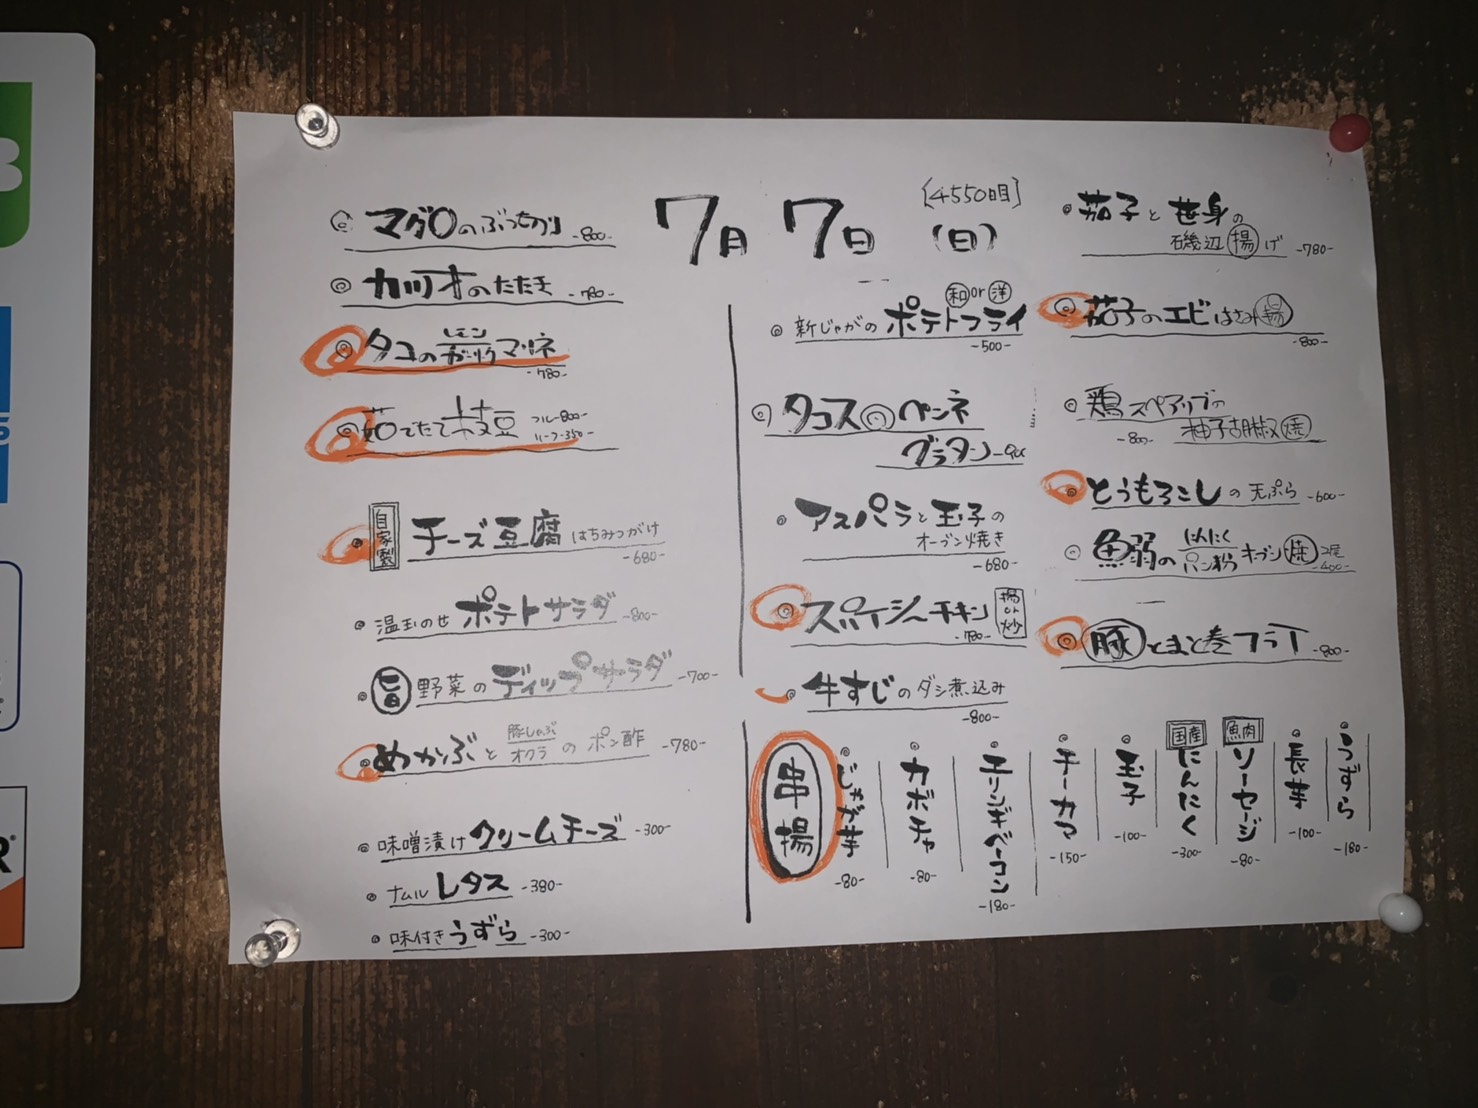 7月7日(日)
[4550日目]
マグロのぶつ切り -800-
カツオのたたき -780-
タコのレモンガーリックマリネ
-780-
茹でたて枝豆 フル-800-
ハーフ-350-
自家製 チーズ豆腐 はちみつがけ
-680-
温玉のせ ポテトサラダ -800-
旨 野菜のディップサラダ -700-
めかぶと豚しゃぶオクラのポン酢 -780-
味噌漬けクリームチーズ -300-
ナムルレタス -380-
味付きうずら -300-
和or洋
新じゃがのポテトフライ
-500-
タコスのペンネ
グラタン -900-
アスパラと玉子の
オーブン焼き
-680-
スパイシーチキン 揚or炒
-780-
牛すじのダシ煮込み
-800-
茄子と笹身の
磯辺揚げ -780-
茄子のエビはさみ揚
-800-
鶏スペアリブの
-800- 柚子胡椒焼
とうもろこしの天ぷら -600-
魚弱のにんにくパン粉オーブン焼 2尾
-400-
豚とまと巻フライ -800-
串揚
じゃが芋 -80-
カボチャ -80-
エリンギベーコン -180-
チーカマ -150-
玉子 -100-
国産 にんにく -300-
魚肉 ソーセージ -80-
長芋 -100-
うずら -180-